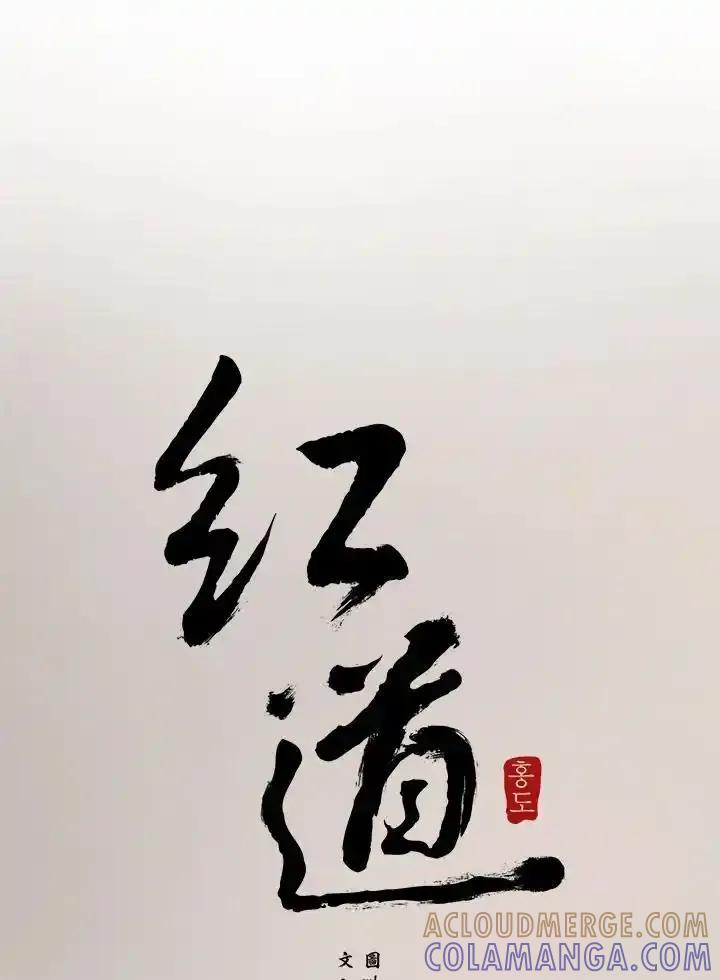 红道
홍도
文 圖
ACLOUDMERGE.COM
COLAMANGA.COM